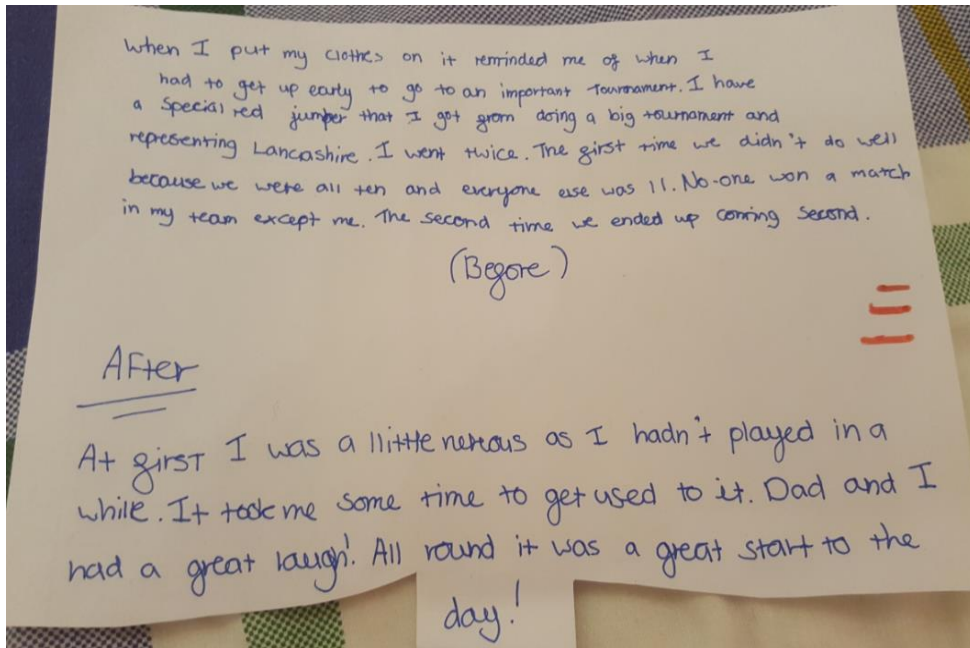 When I put my clothes on it reminded me of when I
had to get up early to go to an important Tournament. I have
a special red jumper that I got from doing a big tournament and
representing Lancashire. I went twice. The first time we didn't do well
because we were all ten and everyone else was 11. No-one won a match
in my team except me. The second time we ended up coming second.
(Before)
After
At first I was a llittle nervous as I hadn't played in a
while. It took me some time to get used to it. Dad and I
had a great laugh! All round it was a great start to the
day!